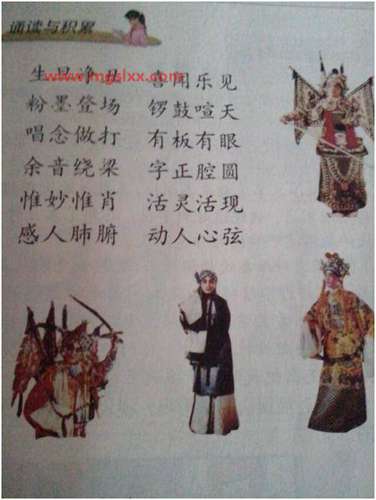 诵读与积累
生旦净丑 喜闻乐见
www.mgslxx.com
粉墨登场 锣鼓喧天
唱念做打 有板有眼
余音绕梁 字正腔圆
惟妙惟肖 活灵活现
感人肺腑 动人心弦